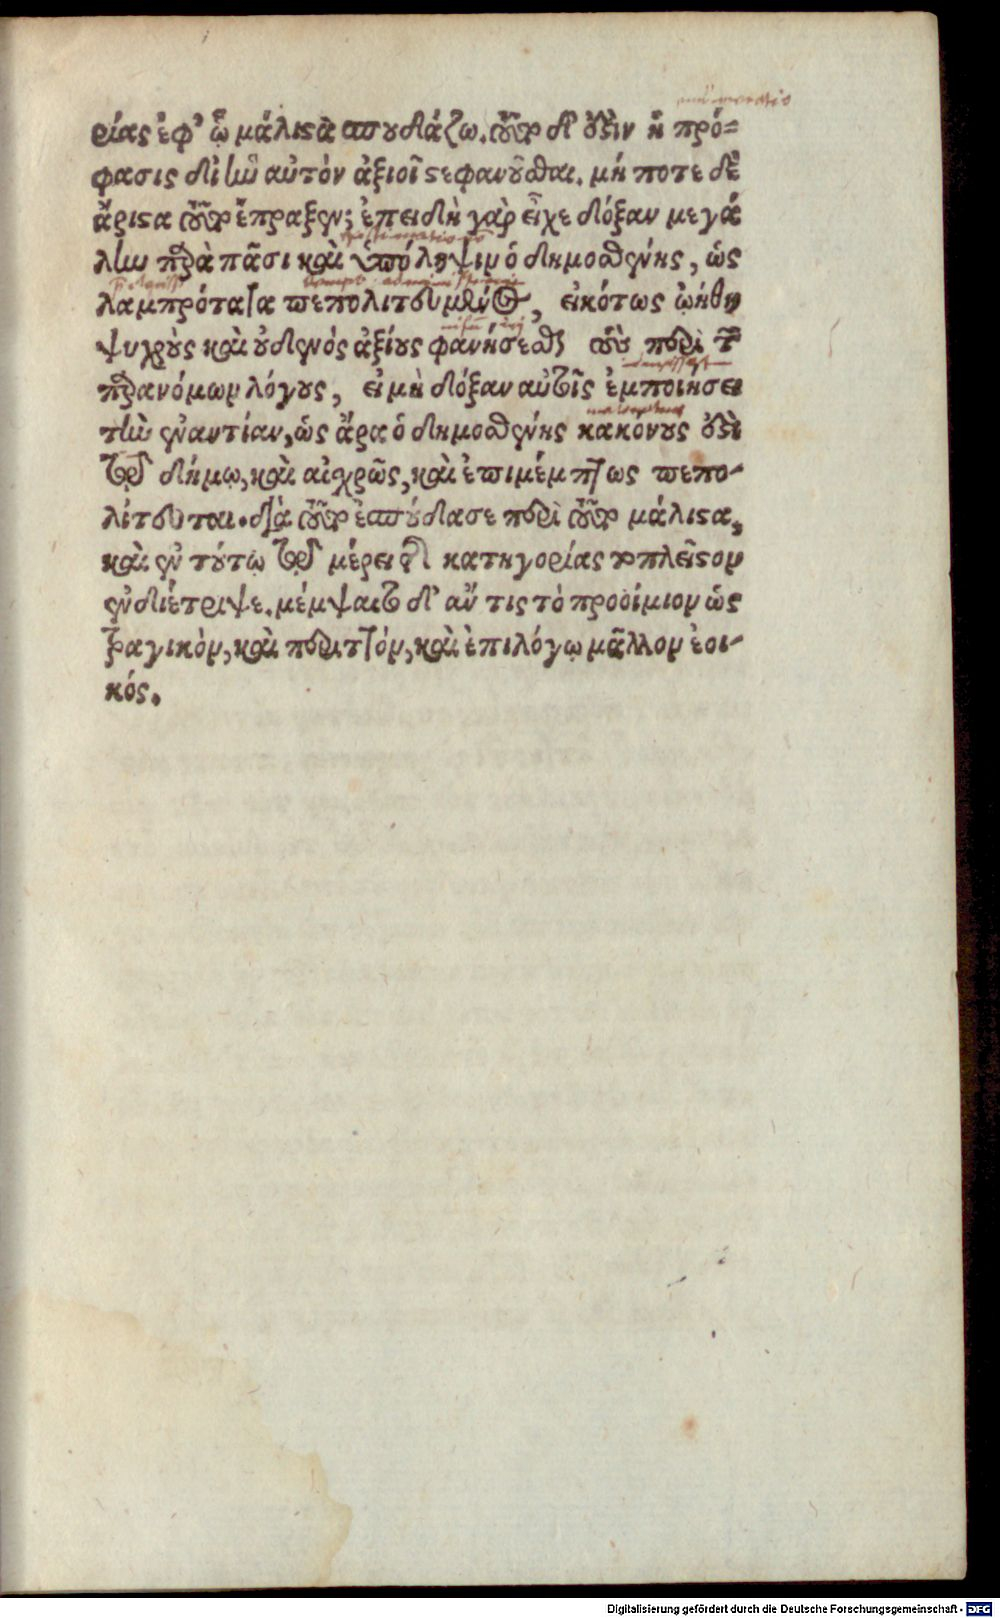 ρίας ἐφ' ᾧ μάλιστα σπουδάζω. τοῦτο δ' ἐστὶν ἡ πρό=
φασις δι' ἣν αὐτὸν ἀξιοῖ στεφανοῦσθαι. μή ποτε δὲ
ἄριστα τοῦτο ἔπραξεν; ἐπειδὴ γὰρ εἶχε δόξαν μεγά
λην παρὰ πᾶσι καὶ ὑπόληψιν ὁ δημοσθένης, ὡς
λαμπρότατα πεπολιτευμένος, εἰκότως ᾠήθη
ψυχροὺς καὶ οὐδενὸς ἀξίους φανήσεσθαι τοὺς περὶ τῶν
παρανόμων λόγους, εἰ μὴ δόξαν αὐτοῖς ἐμποιήσει
τὴν ἐναντίαν, ὡς ἄρα ὁ δημοσθένης κακόνους ἐστὶ
τῷ δήμῳ, καὶ αἰσχρῶς, καὶ ἐπιμέμπτως πεπο-
λίτευται. διὰ τοῦτο ἐσπούδασε περὶ τοῦτο μάλιστα,
καὶ ἐν τούτῳ τῷ μέρει τῆς κατηγορίας τὸ πλεῖστον
ἐνδιέτριψε. μέμψαιτο δ' ἄν τις τὸ προοίμιον ὡς
τραγικὸν, καὶ περιττόν, καὶ ἐπιλόγῳ μᾶλλον ἐοι-
κός.
Digitalisierung gefördert durch die Deutsche Forschungsgemeinschaft - DFG